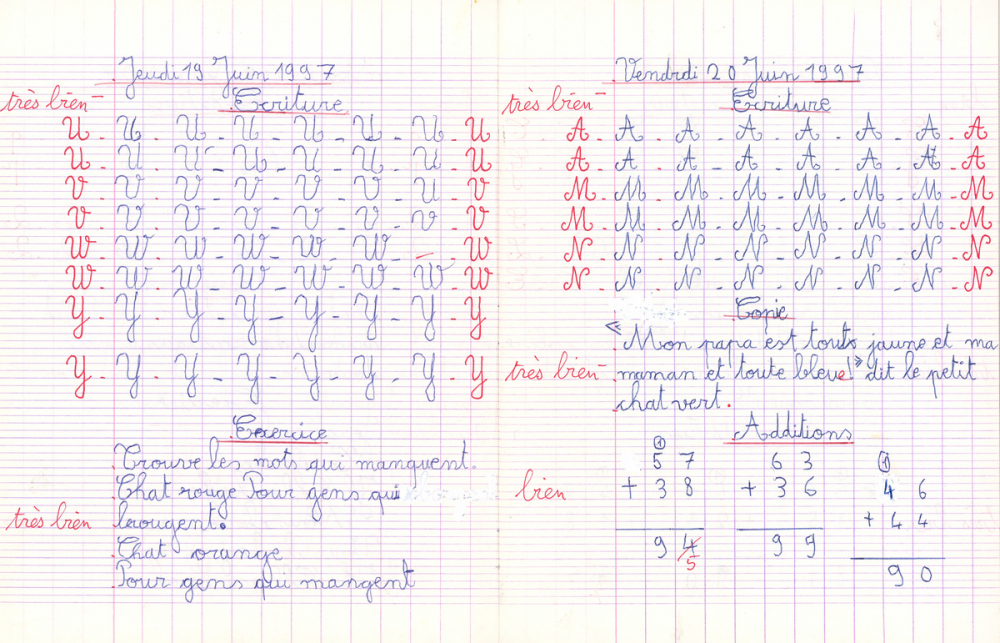 Jeudi 19 Juin 1997
très bien
Ecriture
U - U - U - U - U - U - U - U
U - U - U - U - U - U - U - U
V - V - V - V - V - V - U - V
V - V - V - V - V - V - V - V
W - W - W - W - W - W - - W
W - W - W - W - W - W - W - W
Y - Y - Y - Y - Y - Y - Y - Y
Y - Y - Y - Y - Y - Y - Y - Y
Exercice
Trouve les mots qui manquent.
Chat rouge Pour gens qui
très bien
bougent.
Chat orange
Pour gens qui mangent
Vendrdi 20 Juin 1997
très bien
Ecriture
A - A - A - A - A - A - A - A
A - A - A - A - A - A - A - A
M - M - M - M - M - M - M - M
M - M - M - M - M - M - M - M
N - N - N - N - N - N - N - N
N - N - N - N - N - N - N - N
Copie
« Mon papa est touts jaune et ma
très bien
maman et toute bleue! » dit le petit
chat vert.
Additions
1
57
+ 38
94
5
bien
63
+ 36
99
1
46
+ 44
90